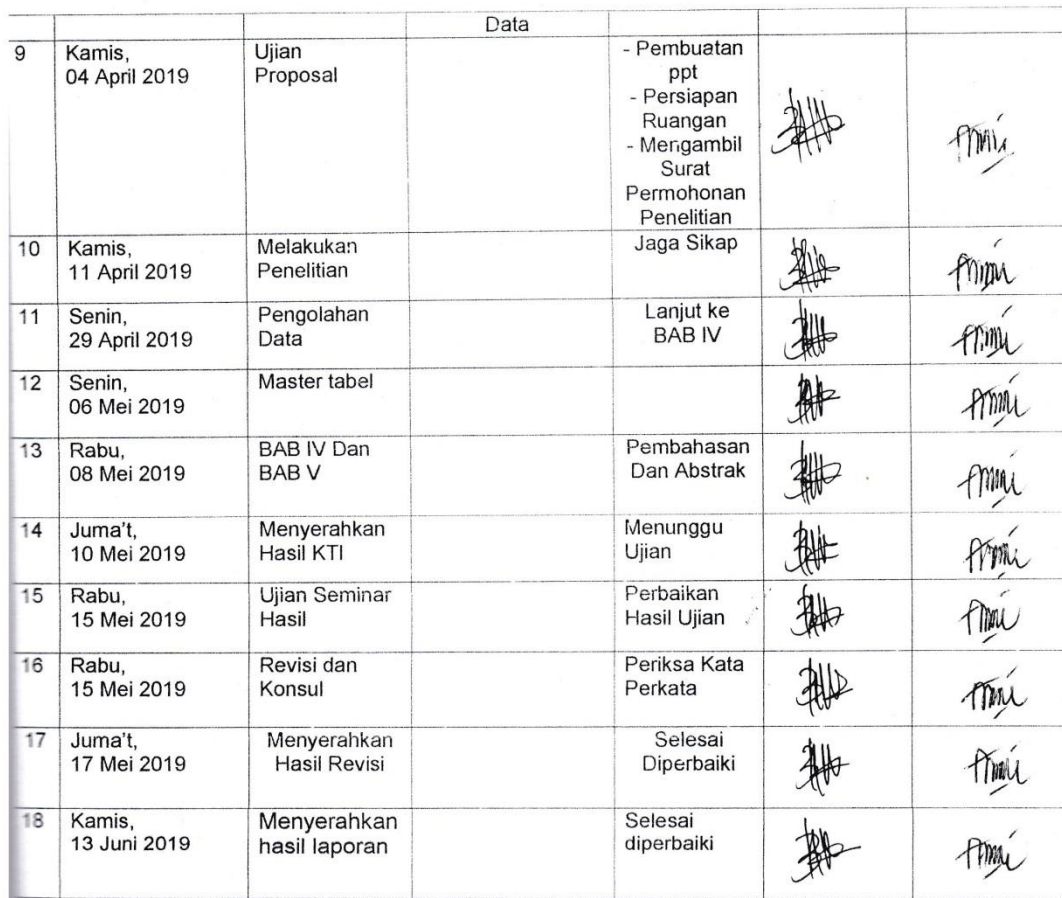 Data
9
Kamis,
04 April 2019
Ujian
Proposal
- Pembuatan
ppt
- Persiapan
Ruangan
- Mengambil
Surat
Permohonan
Penelitian
10
Kamis,
11 April 2019
Melakukan
Penelitian
Jaga Sikap
11
Senin,
29 April 2019
Pengolahan
Data
Lanjut ke
BAB IV
12
Senin,
06 Mei 2019
Master tabel
13
Rabu,
08 Mei 2019
BAB IV Dan
BAB V
Pembahasan
Dan Abstrak
14
Juma't,
10 Mei 2019
Menyerahkan
Hasil KTI
Menunggu
Ujian
15
Rabu,
15 Mei 2019
Ujian Seminar
Hasil
Perbaikan
Hasil Ujian
16
Rabu,
15 Mei 2019
Revisi dan
Konsul
Periksa Kata
Perkata
17
Juma't,
17 Mei 2019
Menyerahkan
Hasil Revisi
Selesai
Diperbaiki
18
Kamis,
13 Juni 2019
Menyerahkan
hasil laporan
Selesai
diperbaiki